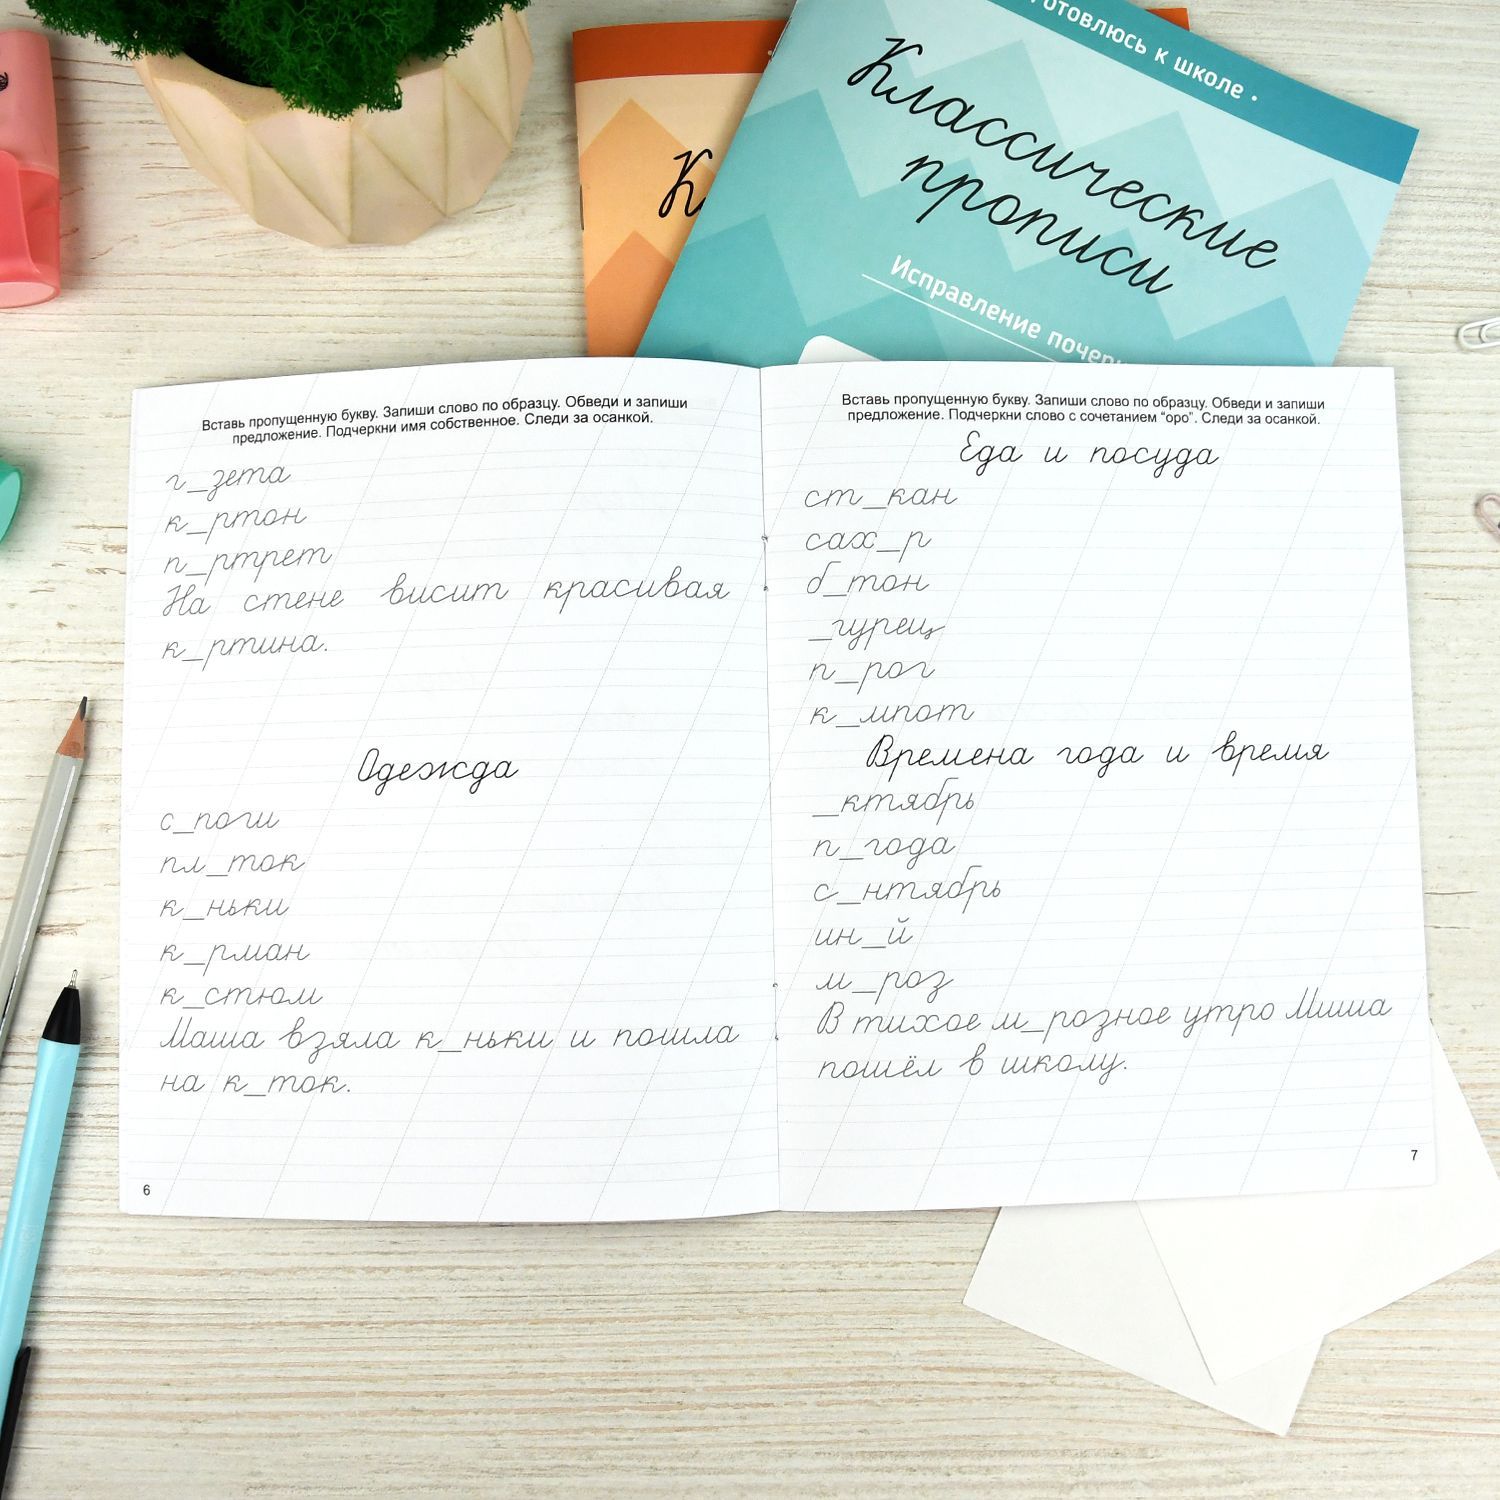 готовлюсь к школе •
Классические
прописи
Исправление
К
Вставь пропущенную букву. Запиши слово по образцу. Обведи и запиши
предложение. Подчеркни имя собственное. Следи за осанкой.
г_зета
к_ртон
п_ртрет
На стене висит красивая
к_ртина.
Одежда
с_поги
пл_ток
к_ньки
к_рман
к_стюм
Маша взяла к_ньки и пошла
на к_ток.
6
Вставь пропущенную букву. Запиши слово по образцу. Обведи и запиши
предложение. Подчеркни слово с сочетанием "оро". Следи за осанкой.
Еда и посуда
ст_кан
сах_р
б_тон
_гурец
п_рог
к_мпот
Времена года и время
_ктябрь
п_года
с_нтябрь
ин_й
м_роз
В тихое м_розное утро Миша
пошёл в школу.
7